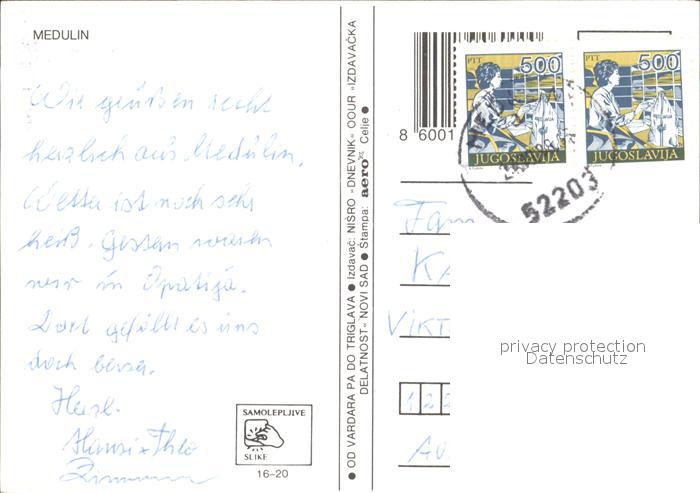 MEDULIN
Wir grüßen recht
herzlich aus Medulin.
Wetter ist noch sehr
heiß. Gestern waren
wir in Opatija.
Dort gefällt es uns
doch besser.
Herzl.
Hansi + Theo
SAMOLEPLJIVE
SLIKE
16–20
● OD VARDARA PA DO TRIGLAVA ● Izdavač: NISRO »DNEVNIK« OOUR »IZDAVAČKA
DELATNOST« NOVI SAD ● Štampa: aero Celje ●
8 6001
PTT 500
JUGOSLAVIJA
PTT 500
JUGOSLAVIJA
52203
Fam
KA
VIKT
1 2 2
privacy protection
Datenschutz